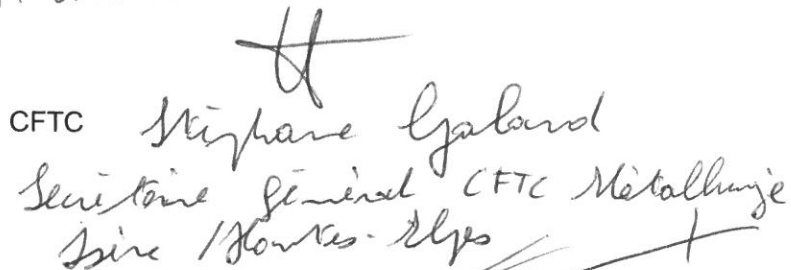 CFTC Stéphane Galand
Secrétaire général CFTC Métallurgie
Isère / Hautes-Alpes